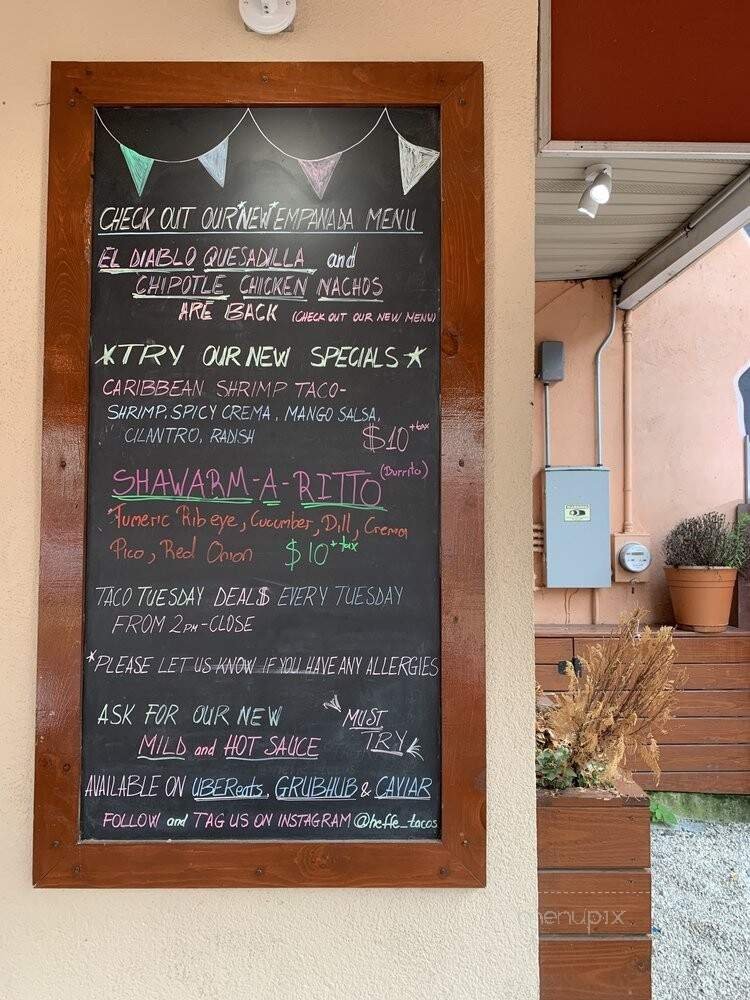 CHECK OUT OUR *NEW* EMPANADA MENU
EL DIABLO QUESADILLA and
CHIPOTLE CHICKEN NACHOS
ARE BACK (CHECK OUT OUR NEW MENU)
*TRY OUR NEW SPECIALS*
CARIBBEAN SHRIMP TACO-
SHRIMP, SPICY CREMA, MANGO SALSA,
CILANTRO, RADISH $10 +tax
SHAWARM-A-RITTO (Burrito)
Tumeric Ribeye, Cucumber, Dill, Crema
Pico, Red Onion $10 +tax
TACO TUESDAY DEAL$ EVERY TUESDAY
FROM 2PM-CLOSE
*PLEASE LET US KNOW IF YOU HAVE ANY ALLERGIES
ASK FOR OUR NEW MUST
MILD and HOT SAUCE TRY
AVAILABLE ON UBEReats, GRUBHUB & CAVIAR
FOLLOW and TAG US ON INSTAGRAM @heffe_tacos
menupix